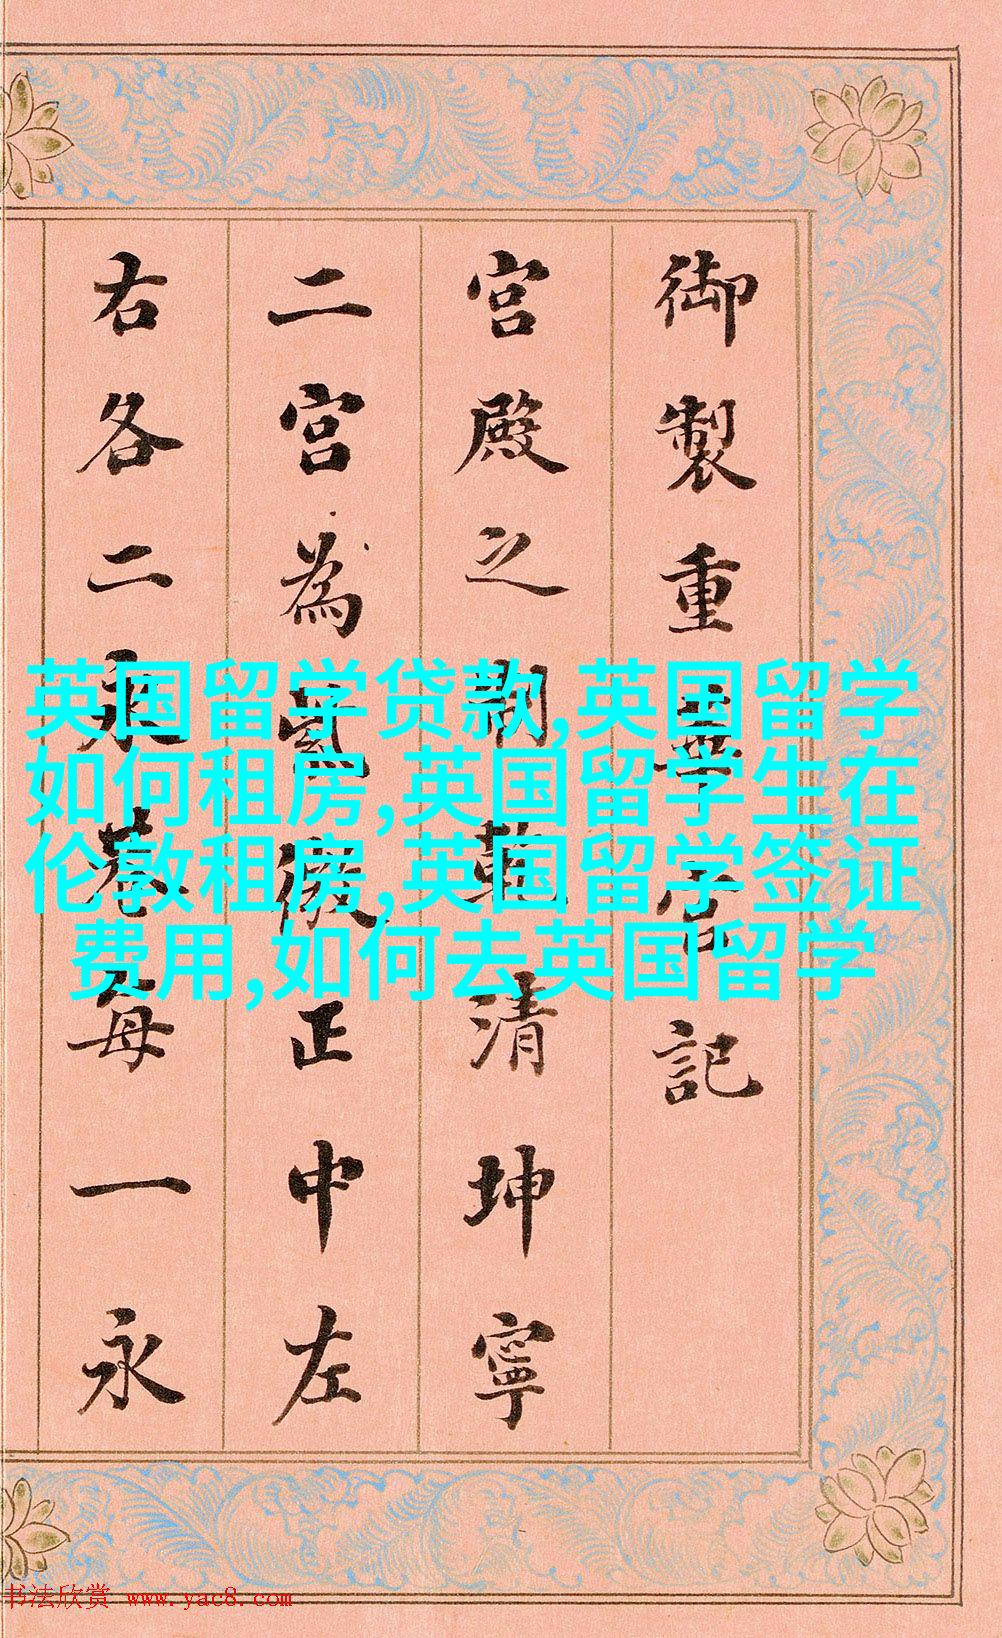 御製重華宮記
宮殿之乾清坤寧
二宮為紫微正中左
右各二永巷每一永
英国留学贷款,英国留学
如何租房,英国留学生在
伦敦租房,英国留学签证
费用,如何去英国留学
书法欣赏 www.yac8.com